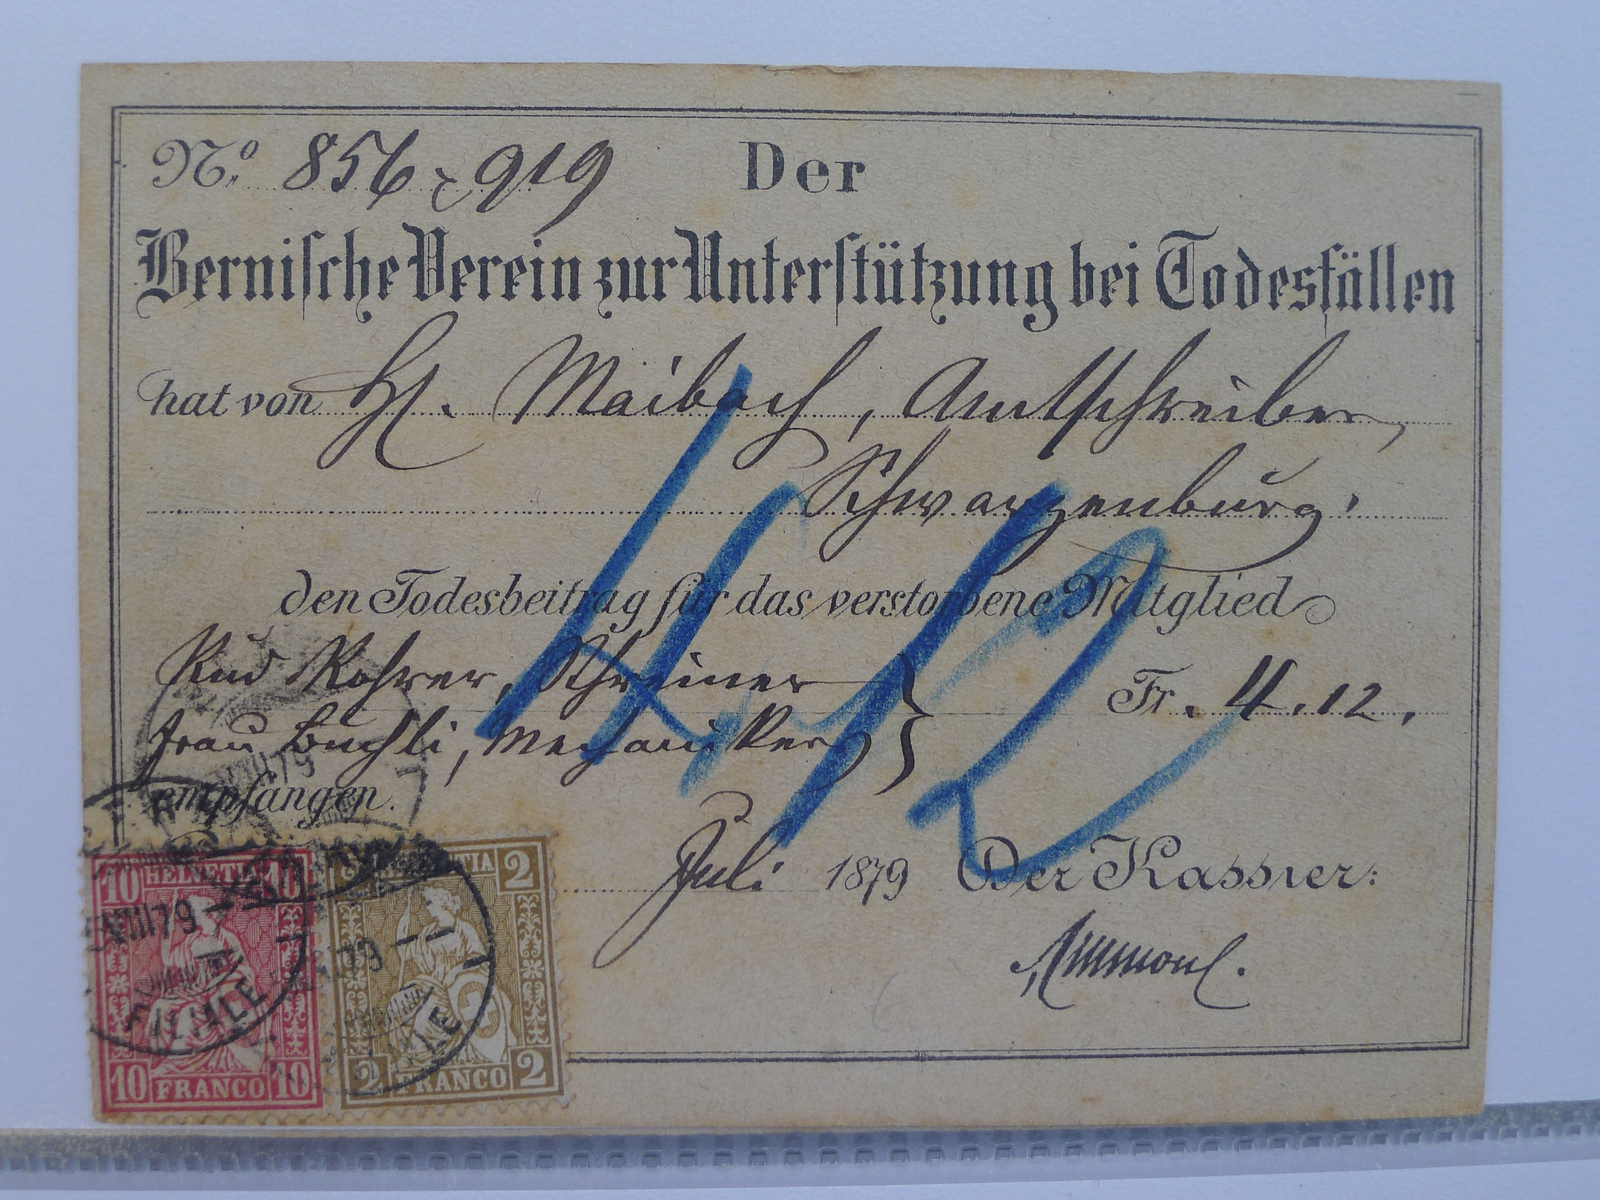 No. 856 & 919 Der
Bernische Verein zur Unterstützung bei Todesfällen
hat von H. Maibach, Amtschreiber,
Schwarzenburg.
den Todesbeitrag für das verstorbene Mitglied
Rud Rohrer, Schreiner
Fr. 4.12.
Frau Buchli, Mechanikers
empfangen.
4.12
Juli 1879 Der Kassier:
10 HELVETIA 10
10 FRANCO 10
HELVETIA 2
2 FRANCO 2
VIII 79
BIENNE